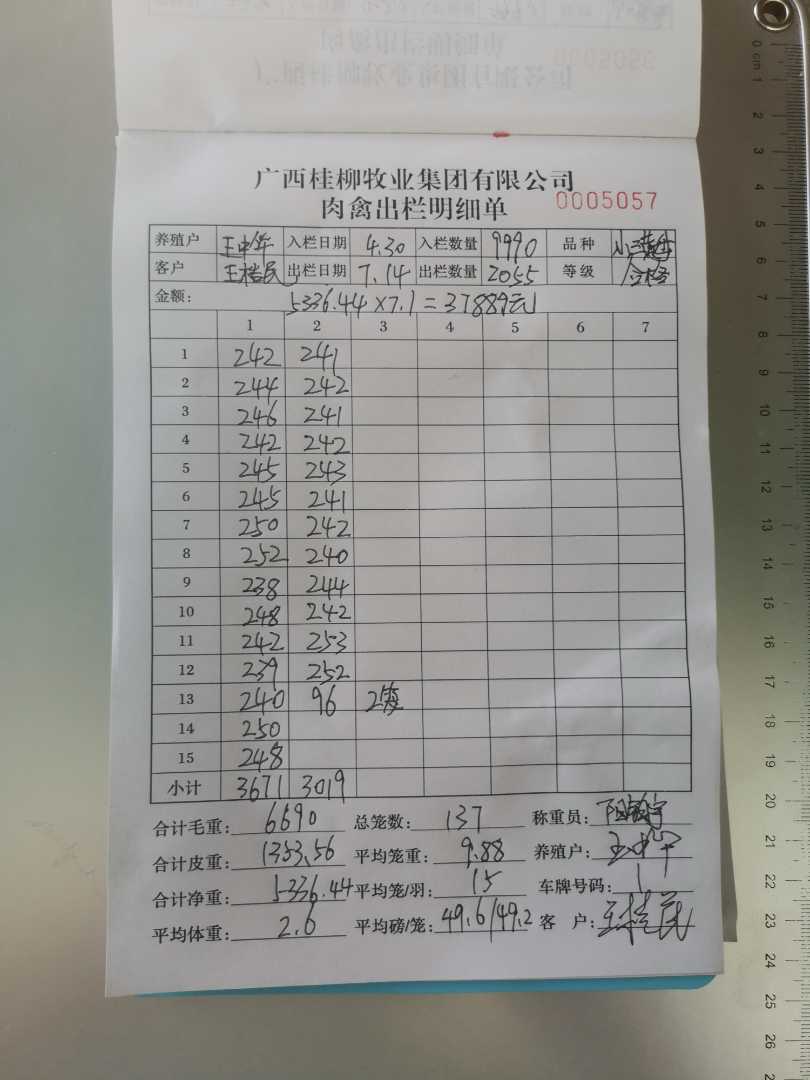 广西桂柳牧业集团有限公司
肉禽出栏明细单 0005057
养殖户 王中年 入栏日期 4.30 入栏数量 9990 品种
客户 王桂民 出栏日期 7.14 出栏数量 2055 等级 合格
金额: 5336.44×7.1=37889元
1 2 3 4 5 6 7
1 242 241
2 244 242
3 246 241
4 242 242
5 245 243
6 245 241
7 250 242
8 252 240
9 238 244
10 248 242
11 242 253
12 239 252
13 240 96 2笼
14 250
15 248
小计 3671 3019
合计毛重: 6690 总笼数: 137 称重员:
合计皮重: 1353.56 平均笼重: 9.88 养殖户:
合计净重: 5336.44 平均笼/羽: 15 车牌号码: 1
平均体重: 2.6 平均磅/笼: 49.6/49.2 客 户: 王桂民
0005056
0 cm 1 2 3 4 5 6 7 8 9 10 11 12 13 14 15 16 17 18 19 20 21 22 23 24 25 26